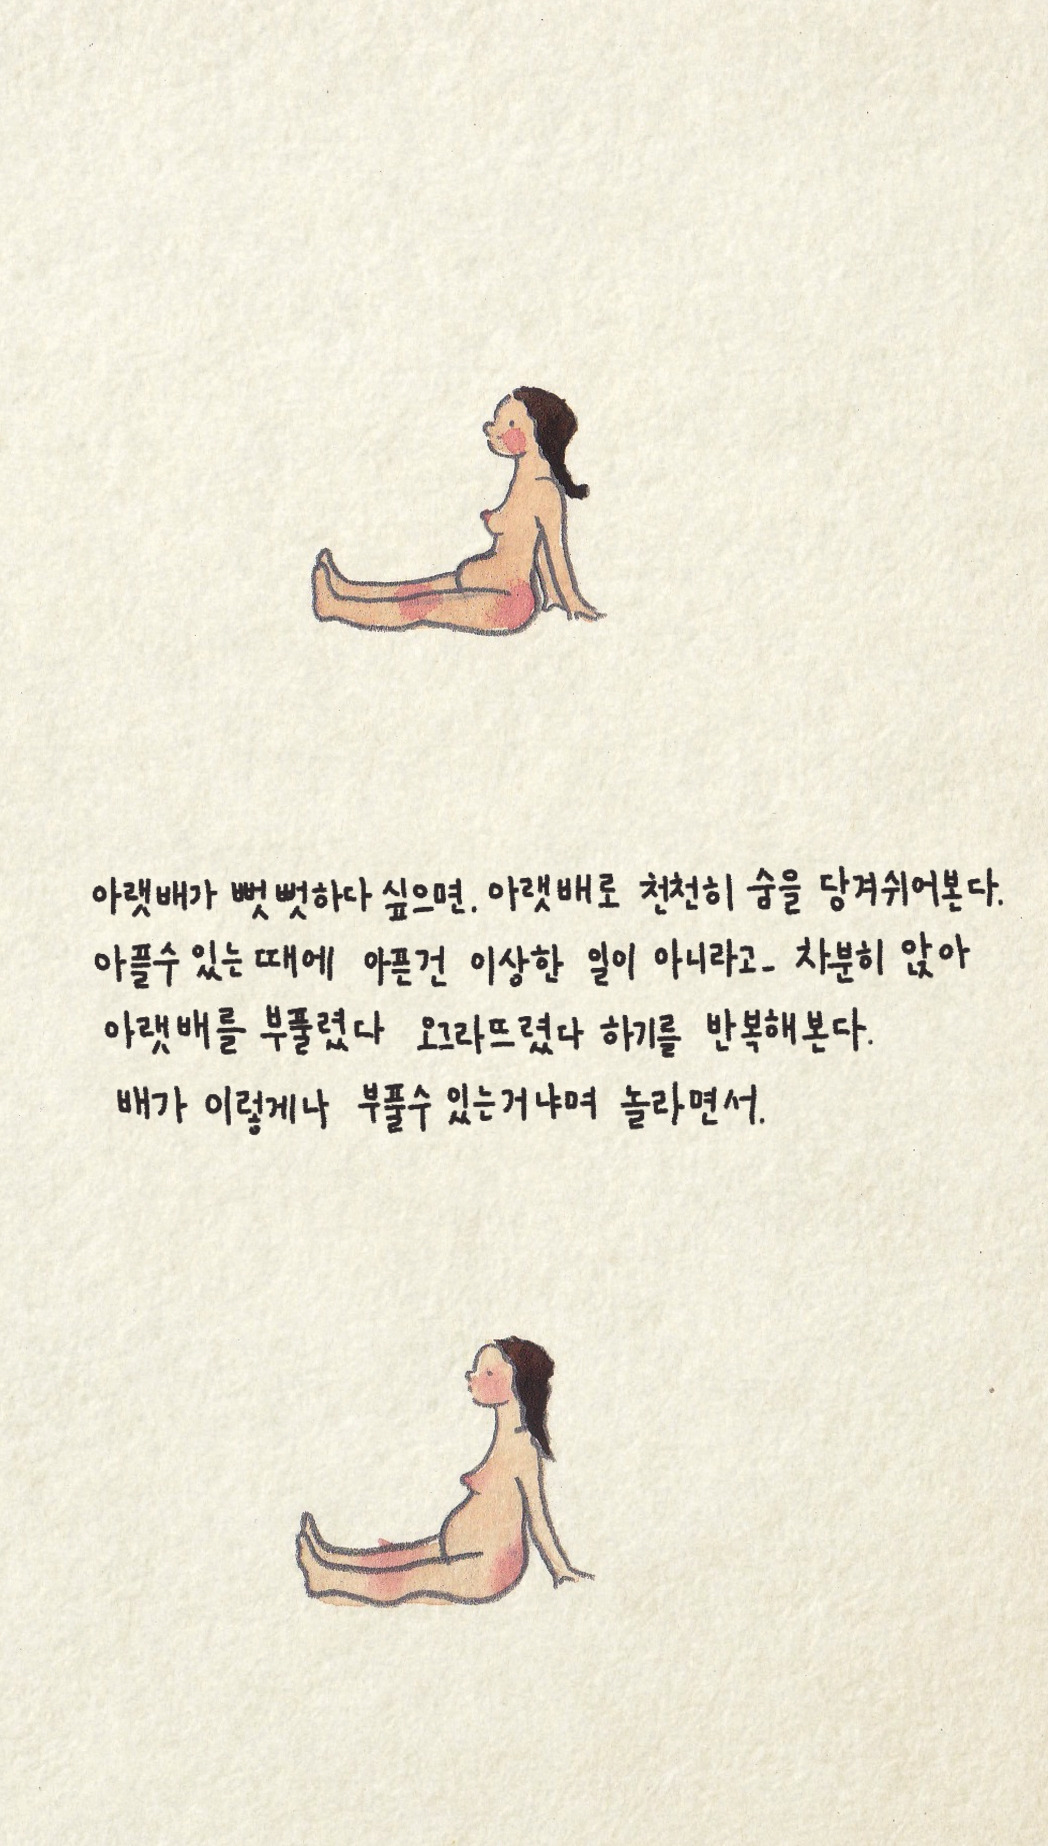 아랫배가 뻣뻣하다 싶으면. 아랫배로 천천히 숨을 당겨쉬어본다.
아플수 있는 때에 아픈건 이상한 일이 아니라고_ 차분히 앉아
아랫배를 부풀렸다 오그라뜨렸다 하기를 반복해본다.
배가 이렇게나 부풀수 있는거냐며 놀라면서.